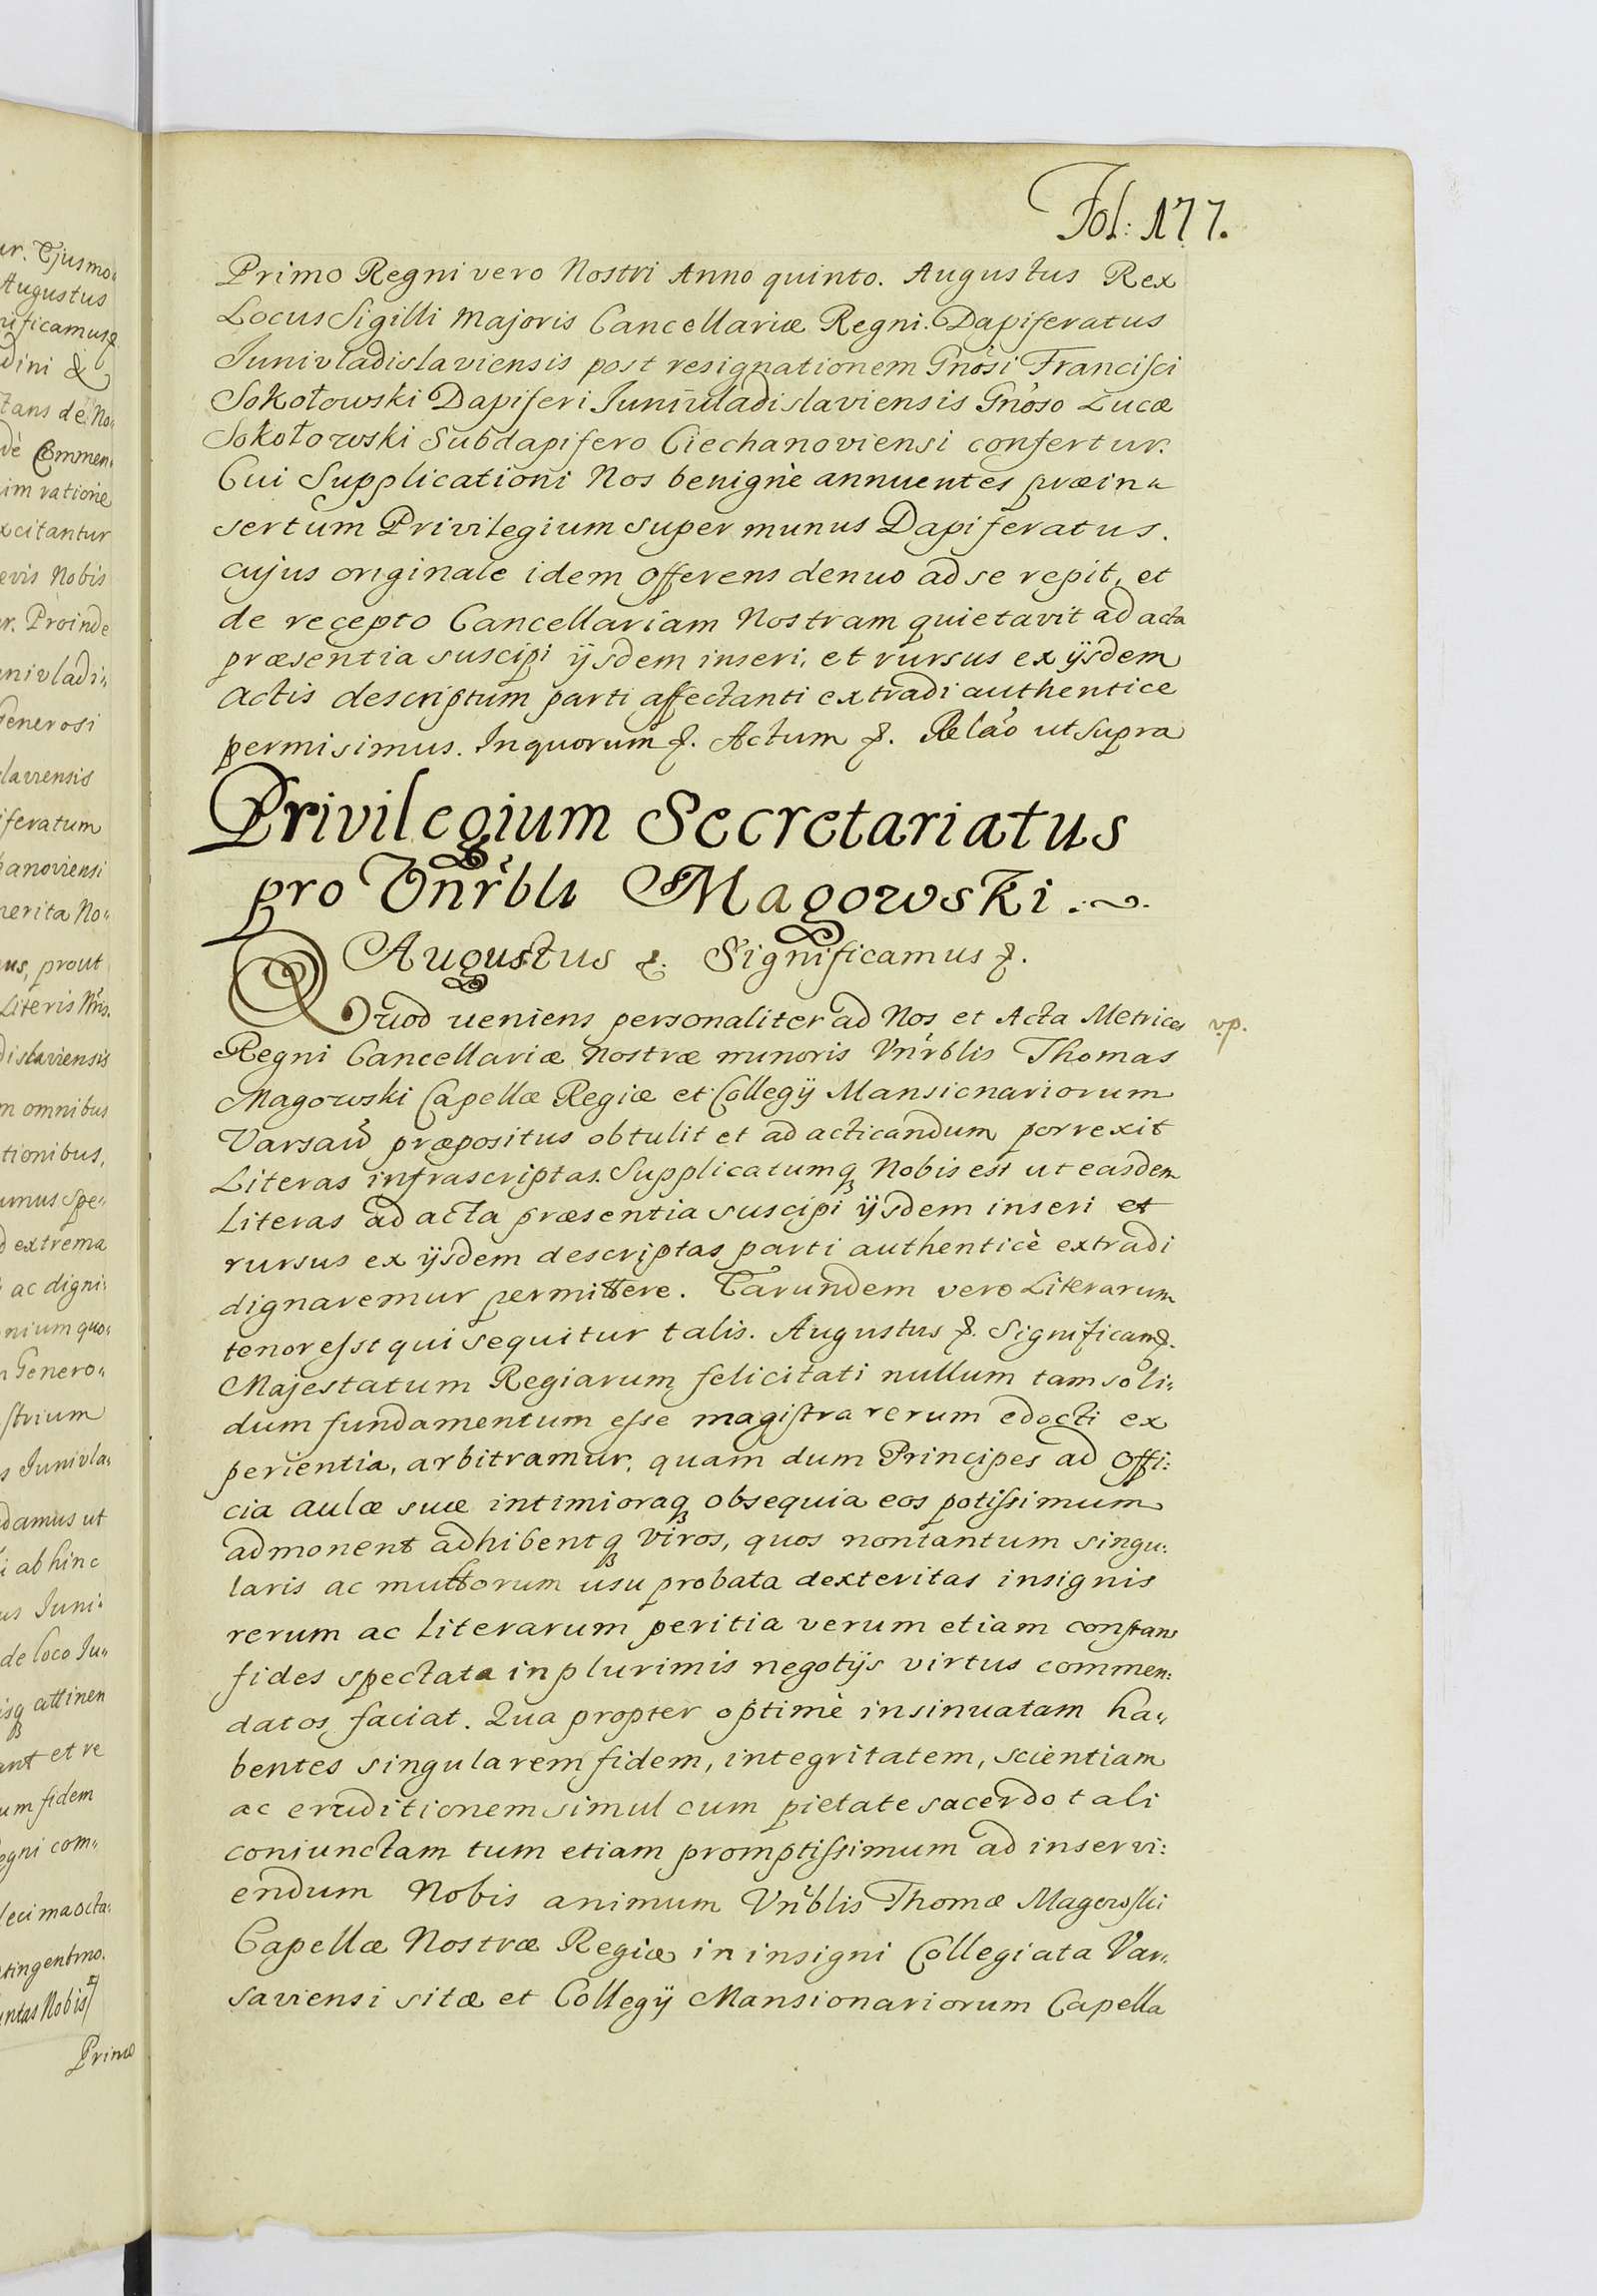 Fol: 177.
Primo Regni vero Nostri Anno quinto. Augustus Rex
Locus Sigilli Majoris Cancellariæ Regni. Dapiferatus
Junivladislaviensis post resignationem Gnosi Francisci
Sokołowski Dapiferi Junivladislaviensis Gnoso Lucæ
Sokołowski Subdapifero Ciechanoviensi confertur.
Cui Supplicationi Nos benignè annuentes præin„
sertum Privilegium super munus Dapiferatus.
cujus originale idem offerens denuo ad se repit, et
de recepto Cancellariam Nostram quietavit ad acta
præsentia suscipi ijsdem inseri, et rursus ex ijsdem
actis descriptum parti affectanti extradi authentice
permisimus. In quorum &. Actum &. Relao ut supra
Privilegium Secretariatus
pro Vnrbli Magowski
Augustus &. Significamus &.
Quod veniens personaliter ad Nos et Acta Metrices v.p.
Regni Cancellariæ nostræ minoris Vnrblis Thomas
Magowski Capellæ Regiæ et Collegij Mansionariorum
Varsav præpositus obtulit et ad acticandum porrexit
Literas infrascriptas. Supplicatumq3 Nobis est ut easdem
Literas ad acta præsentia suscipi ijsdem inseri et
rursus ex ijsdem descriptas parti authenticè extradi
dignaremur permittere. Earundem vero Literarum
tenor esst qui sequitur talis. Augustus &. Significam &.
Majestatum Regiarum felicitati nullum tam soli:
dum fundamentum esse magistra rerum edocti ex
perientia, arbitramur, quam dum Principes ad offi:
cia aulæ suæ intimioraq3 obsequia eos potissimum
admonent adhibentq3 viros, quos nontantum singu:
laris ac multorum usu probata dexteritas insignis
rerum ac literarum peritia verum etiam constans
fides spectata in plurimis negotijs virtus commen:
datos faciat. Qua propter optimè insinuatam ha„
bentes singularem fidem, integritatem, scientiam
ac eruditionem simul cum pietate sacerdotali
coniunctam tum etiam promptissimum ad inservi:
endum Nobis animum Vnrblis Thomæ Magowski
Capellæ Nostræ Regiæ in insigni Collegiata Var„
saviensi sitæ et Collegij Mansionariorum Capella